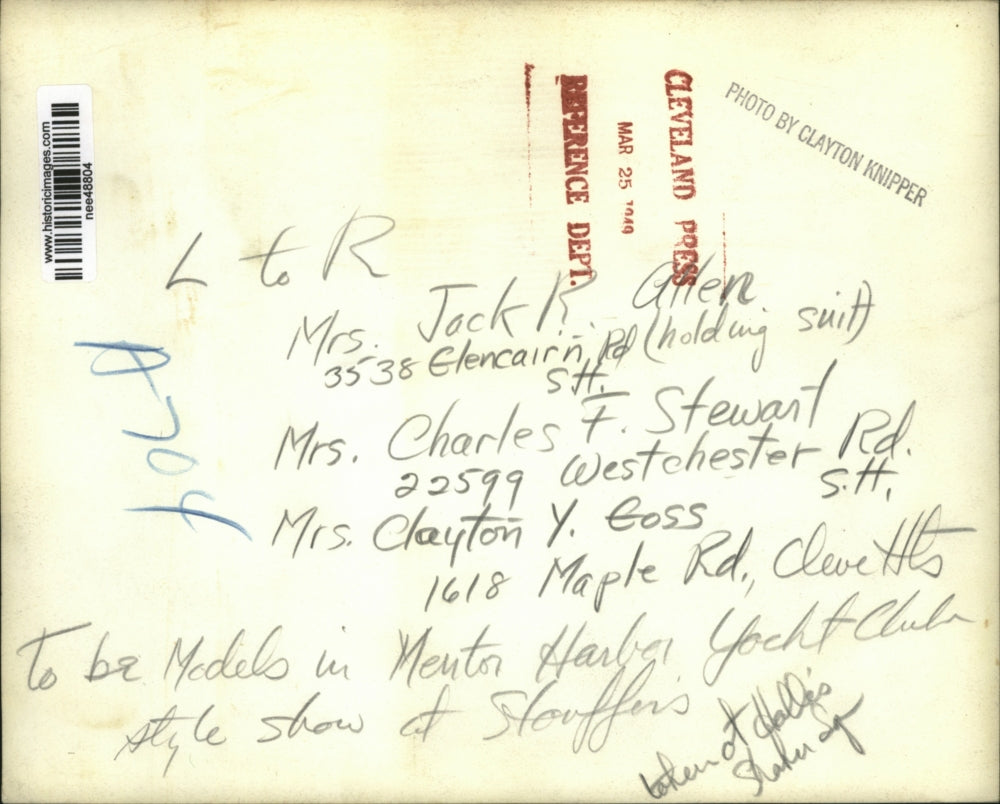 www.historicimages.com
nee48804
CLEVELAND PRESS
MAR 25 1949
REFERENCE DEPT.
PHOTO BY CLAYTON KNIPPER
L to R
Mrs. Jack R. Allen
(holding suit)
3538 Glencairn Rd
S.H.
Mrs. Charles F. Stewart
22599 Westchester Rd.
S.H.
Mrs. Clayton Y. Goss
1618 Maple Rd., Cleve Hts
To be Models in Mentor Harbor Yacht Club
style show at Stouffers
taken at Halle's
Shaker Sq